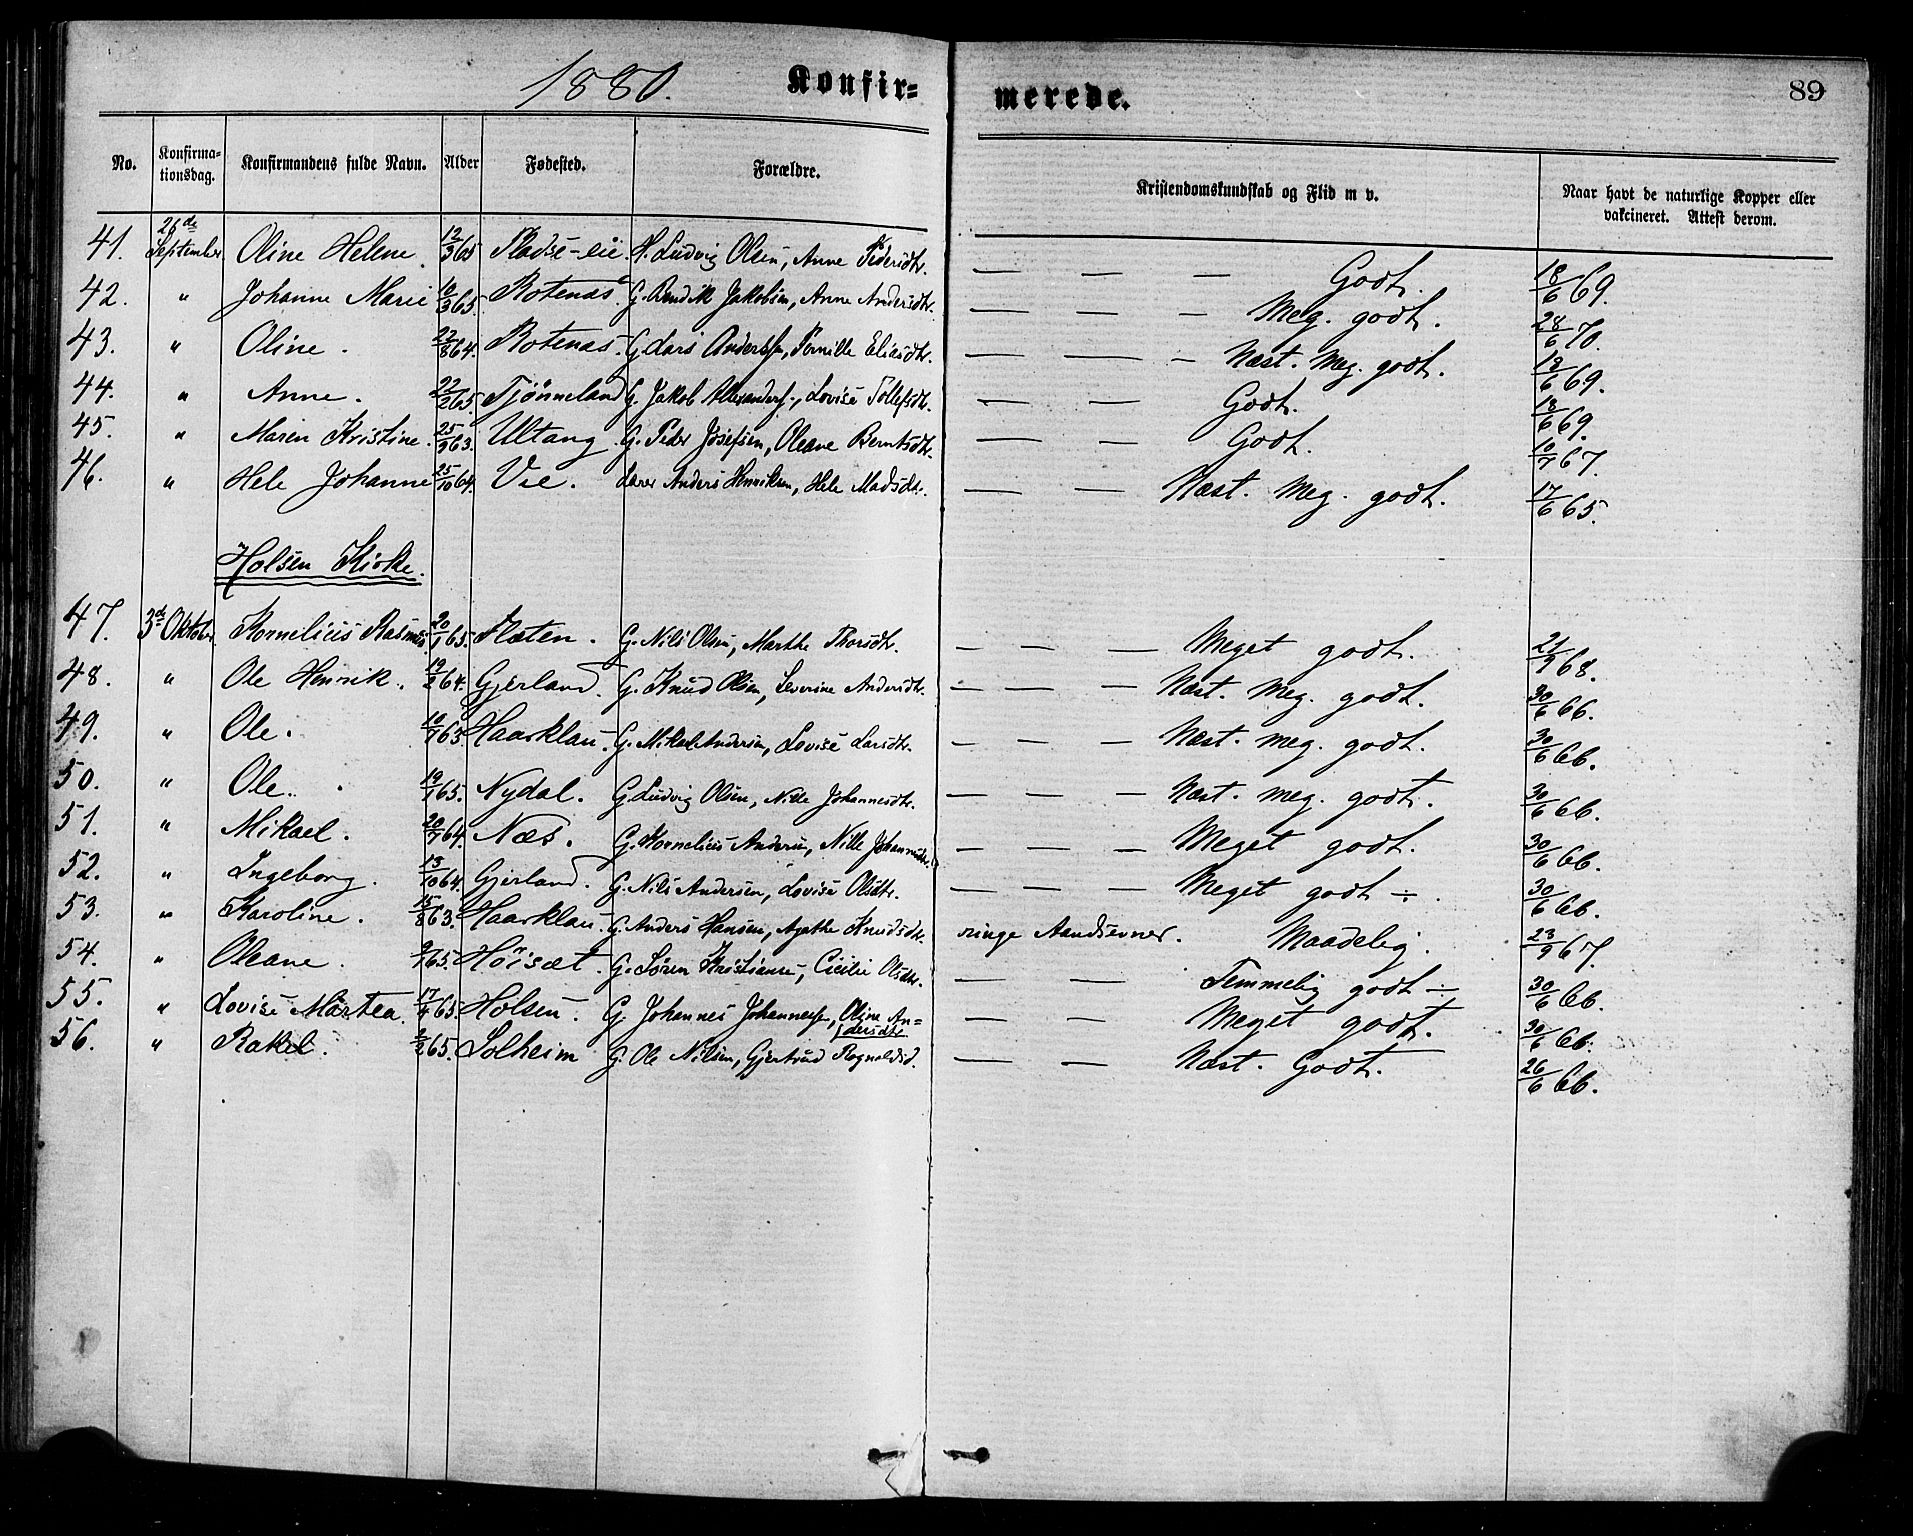 1880. Konfir=
merede. 89
No. Konfirma-tionsdag. Konfirmandens fulde Navn. Alder Fødested. Forældre. Kristendomskundskab og Flid m v. Naar havt de naturlige Kopper eller vakcineret. Attest derom.
41. 26de September Oline Helene. 12/3 65 Pladse-eie. H. Ludvig Olsen, Anne Pedersdtr. — — — Godt. 18/6 69.
42. " Johanne Marie 10/3 65. Rotenæs G. Bendik Jakobsen, Anne Andersdtr. — — — Meg. godt. 28/6 70.
43. " Oline. 22/8 64. Rotenæs. G. Lars Anderssen, Pernille Eliasdtr. — — — — Næst. Meg. godt. 18/6 69.
44. " Anne. 22/2 65. Tjønneland G. Jakob Alexanders., Lovise Tollefsdtr. — — Godt. 18/6 69.
45. " Maren Kristine. 25/9 63. Ultang G. Peder Josefsen, Oleane Berntsdtr. — — Godt. 10/7 67.
46. " Hele Johanne 25/10 64. Vie. Lærer Anders Henriksen, Hele Madsdtr. — — Næst. Meg. godt. 17/6 65.
Holsen Kirke.
47. 3de Oktober Kornelius Rasmus 20/1 65. Flæten. G. Nils Olsen, Marthe Thorsdtr. — — — Meget godt. 21/9 68.
48. " Ole Henrik. 19/2 64. Gjerland. G. Knud Olsen, Severine Andersdtr. — — — Næst. Meg. godt. 30/6 66.
49. " Ole. 10/7 63 Haarklau. G. Mikal Andersen, Lovise Larsdtr. — — — Næst. meg. godt. 30/6 66.
50. " Ole. 19/1 65. Nydal. G. Ludvig Olsen, Nille Johannesdtr. — — — Næst. meg. godt. 30/6 66.
51. " Mikael. 20/7 64. Næs. G. Kornelius Andersen, Nille Johannesdtr. — — — Meget godt. 30/6 66.
52. " Ingeborg. 13/10 64. Gjerland. G. Nils Andersen, Lovise Olsdtr. — — — Meget godt ÷ 30/6 66.
53. " Karoline. 15/8 63. Haarklau. G. Anders Hansen, Agathe Knudsdtr. ringe Aandsevner. Maadelig. 23/9 67.
54. " Oleane. 65. Höisæt. G. Søren Kristiansen, Cicilie Olsdtr. — — Temmelig godt ÷ 30/6 66.
55. " Lovise Martea. 17/4 65. Holsen. G. Johannes Johannessen, Oline An=
dersdtr. — — Meget godt. 30/6 66.
56. " Rakel. 2/2 65. Solheim G. Ole Nilsen, Gjertrud Ragnaldsd. — — Næst. Godt. 26/6 66.